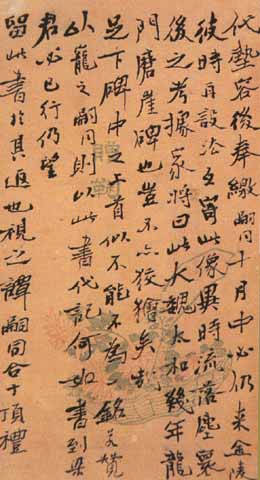 代墊容後奉繳嗣同十月中必仍来金陵
彼時再設法互寄此像異時流落塵寰
後之考據家將曰此大魏太和幾年龍
門磨崖碑也豈不亦狡獪矣哉
足下碑中之上首似不能不為一銘文贊
以寵之嗣同則以此書代記何如書到梁
君必已行仍望
留此書於其返也視之譚嗣同合十頂禮